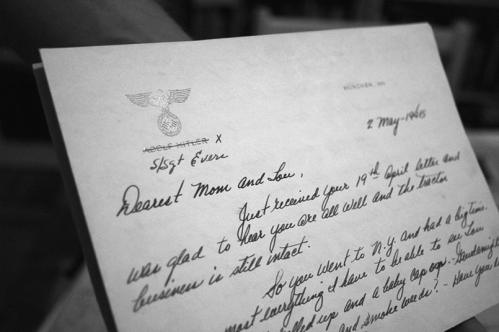 MÜNCHEN, DEN
ADOLF HITLER X
S/Sgt Evers
2 May-1945
Dearest Mom and Lou,
Just received your 19th April letter and
was glad to hear you are all well and the tractor
business is still intact.
So you went to N.Y. and had a big time.
most everything I'd have to be able to see Lou
filled up and a baby cap on
and smoke weeds? - Have you